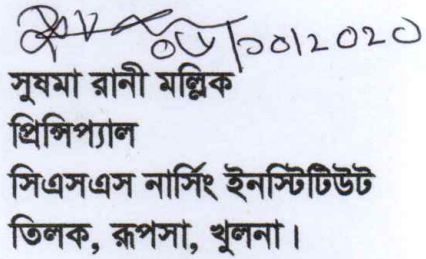 সুষমা রানী মল্লিক
প্রিন্সিপ্যাল
সিএসএস নার্সিং ইনস্টিটিউট
তিলক, রূপসা, খুলনা।